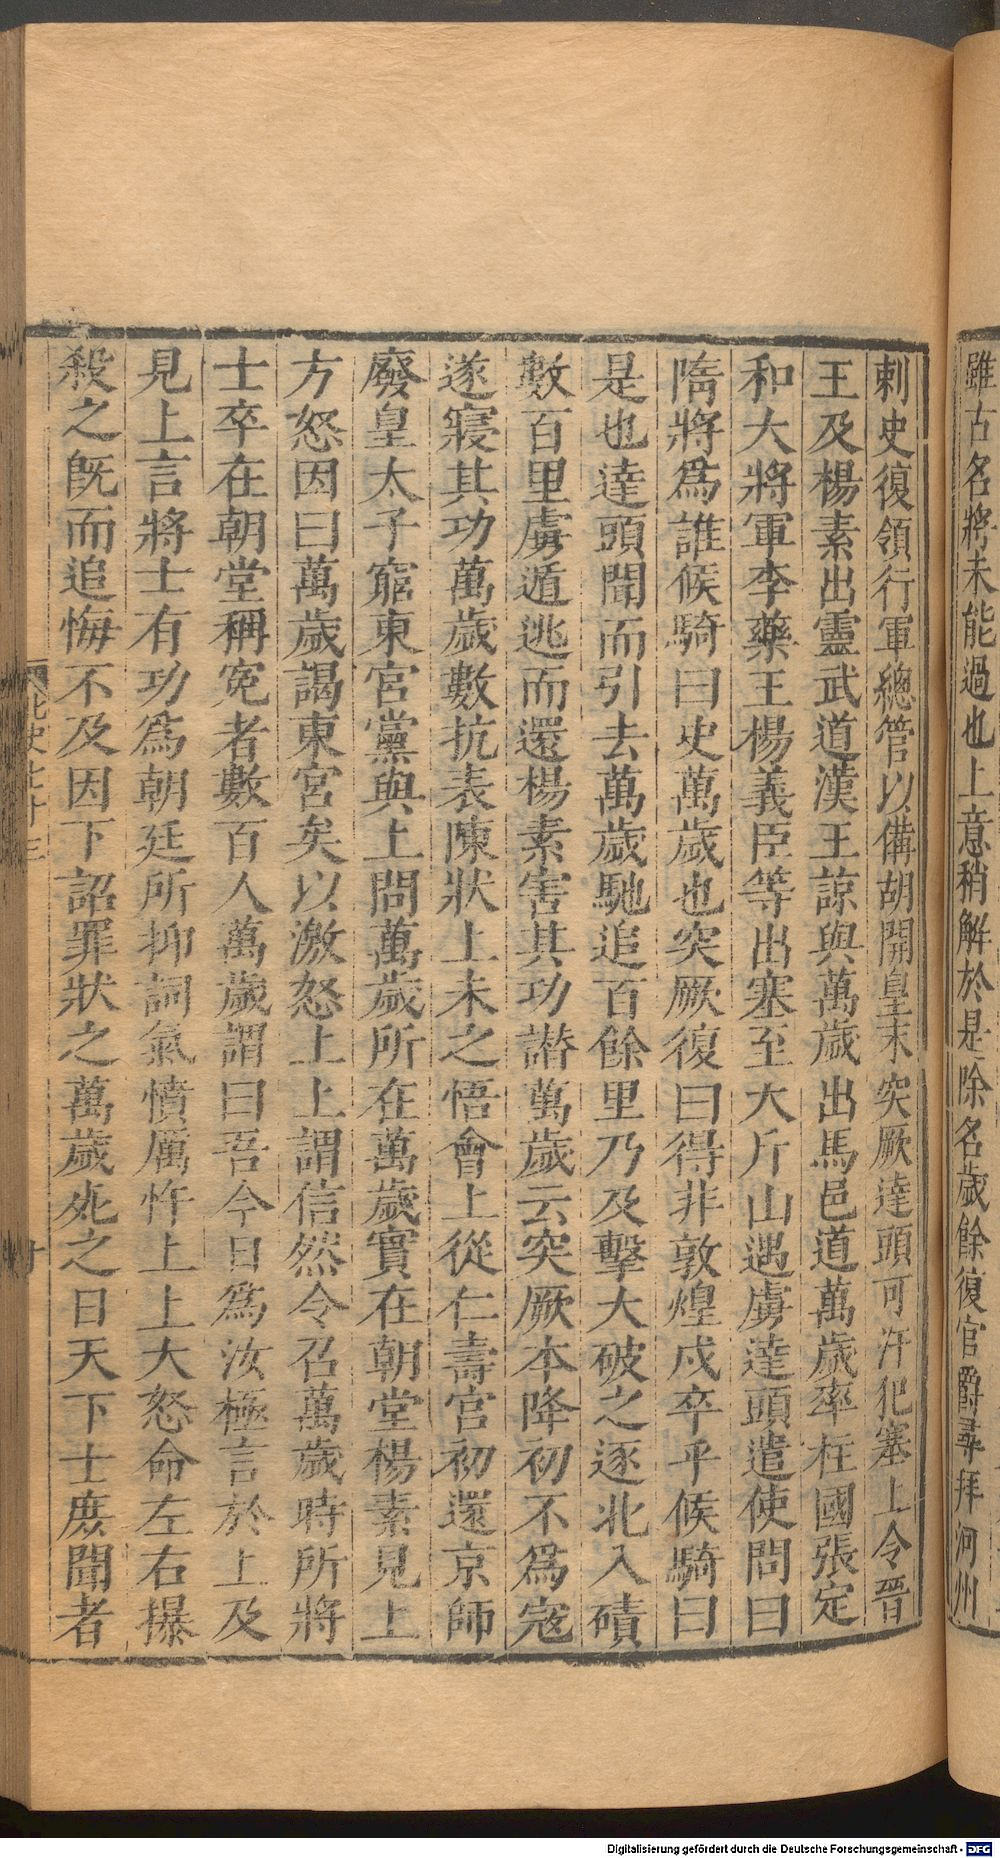 雖古名將未能過也上意稍解於是除名歲餘復官爵尋拜河州
刺史復領行軍總管以備胡開皇末突厥達頭可汗犯塞上令晉
王及楊素出靈武道漢王諒與萬歲出馬邑道萬歲率柱國張定
和大將軍李藥王楊義臣等出塞至大斤山遇虜達頭遣使問曰
隋將爲誰候騎曰史萬歲也突厥復曰得非敦煌戍卒乎候騎曰
是也達頭聞而引去萬歲馳追百餘里乃及擊大破之逐北入磧
數百里虜遁逃而還楊素害其功譖萬歲云突厥本降初不爲寇
遂寢其功萬歲數抗表陳狀上未之悟會上從仁壽宮初還京師
廢皇太子窮東宮黨與上問萬歲所在萬歲實在朝堂楊素見上
方怒因曰萬歲謁東宮矣以激怒上上謂信然令召萬歲時所將
士卒在朝堂稱寃者數百人萬歲謂曰吾今日爲汝極言於上及
見上言將士有功爲朝廷所抑詞氣憤厲忤上上大怒命左右㩧
殺之旣而追悔不及因下詔罪狀之萬歲死之日天下士庶聞者
北史七十三
Digitalisierung gefördert durch die Deutsche Forschungsgemeinschaft - DFG